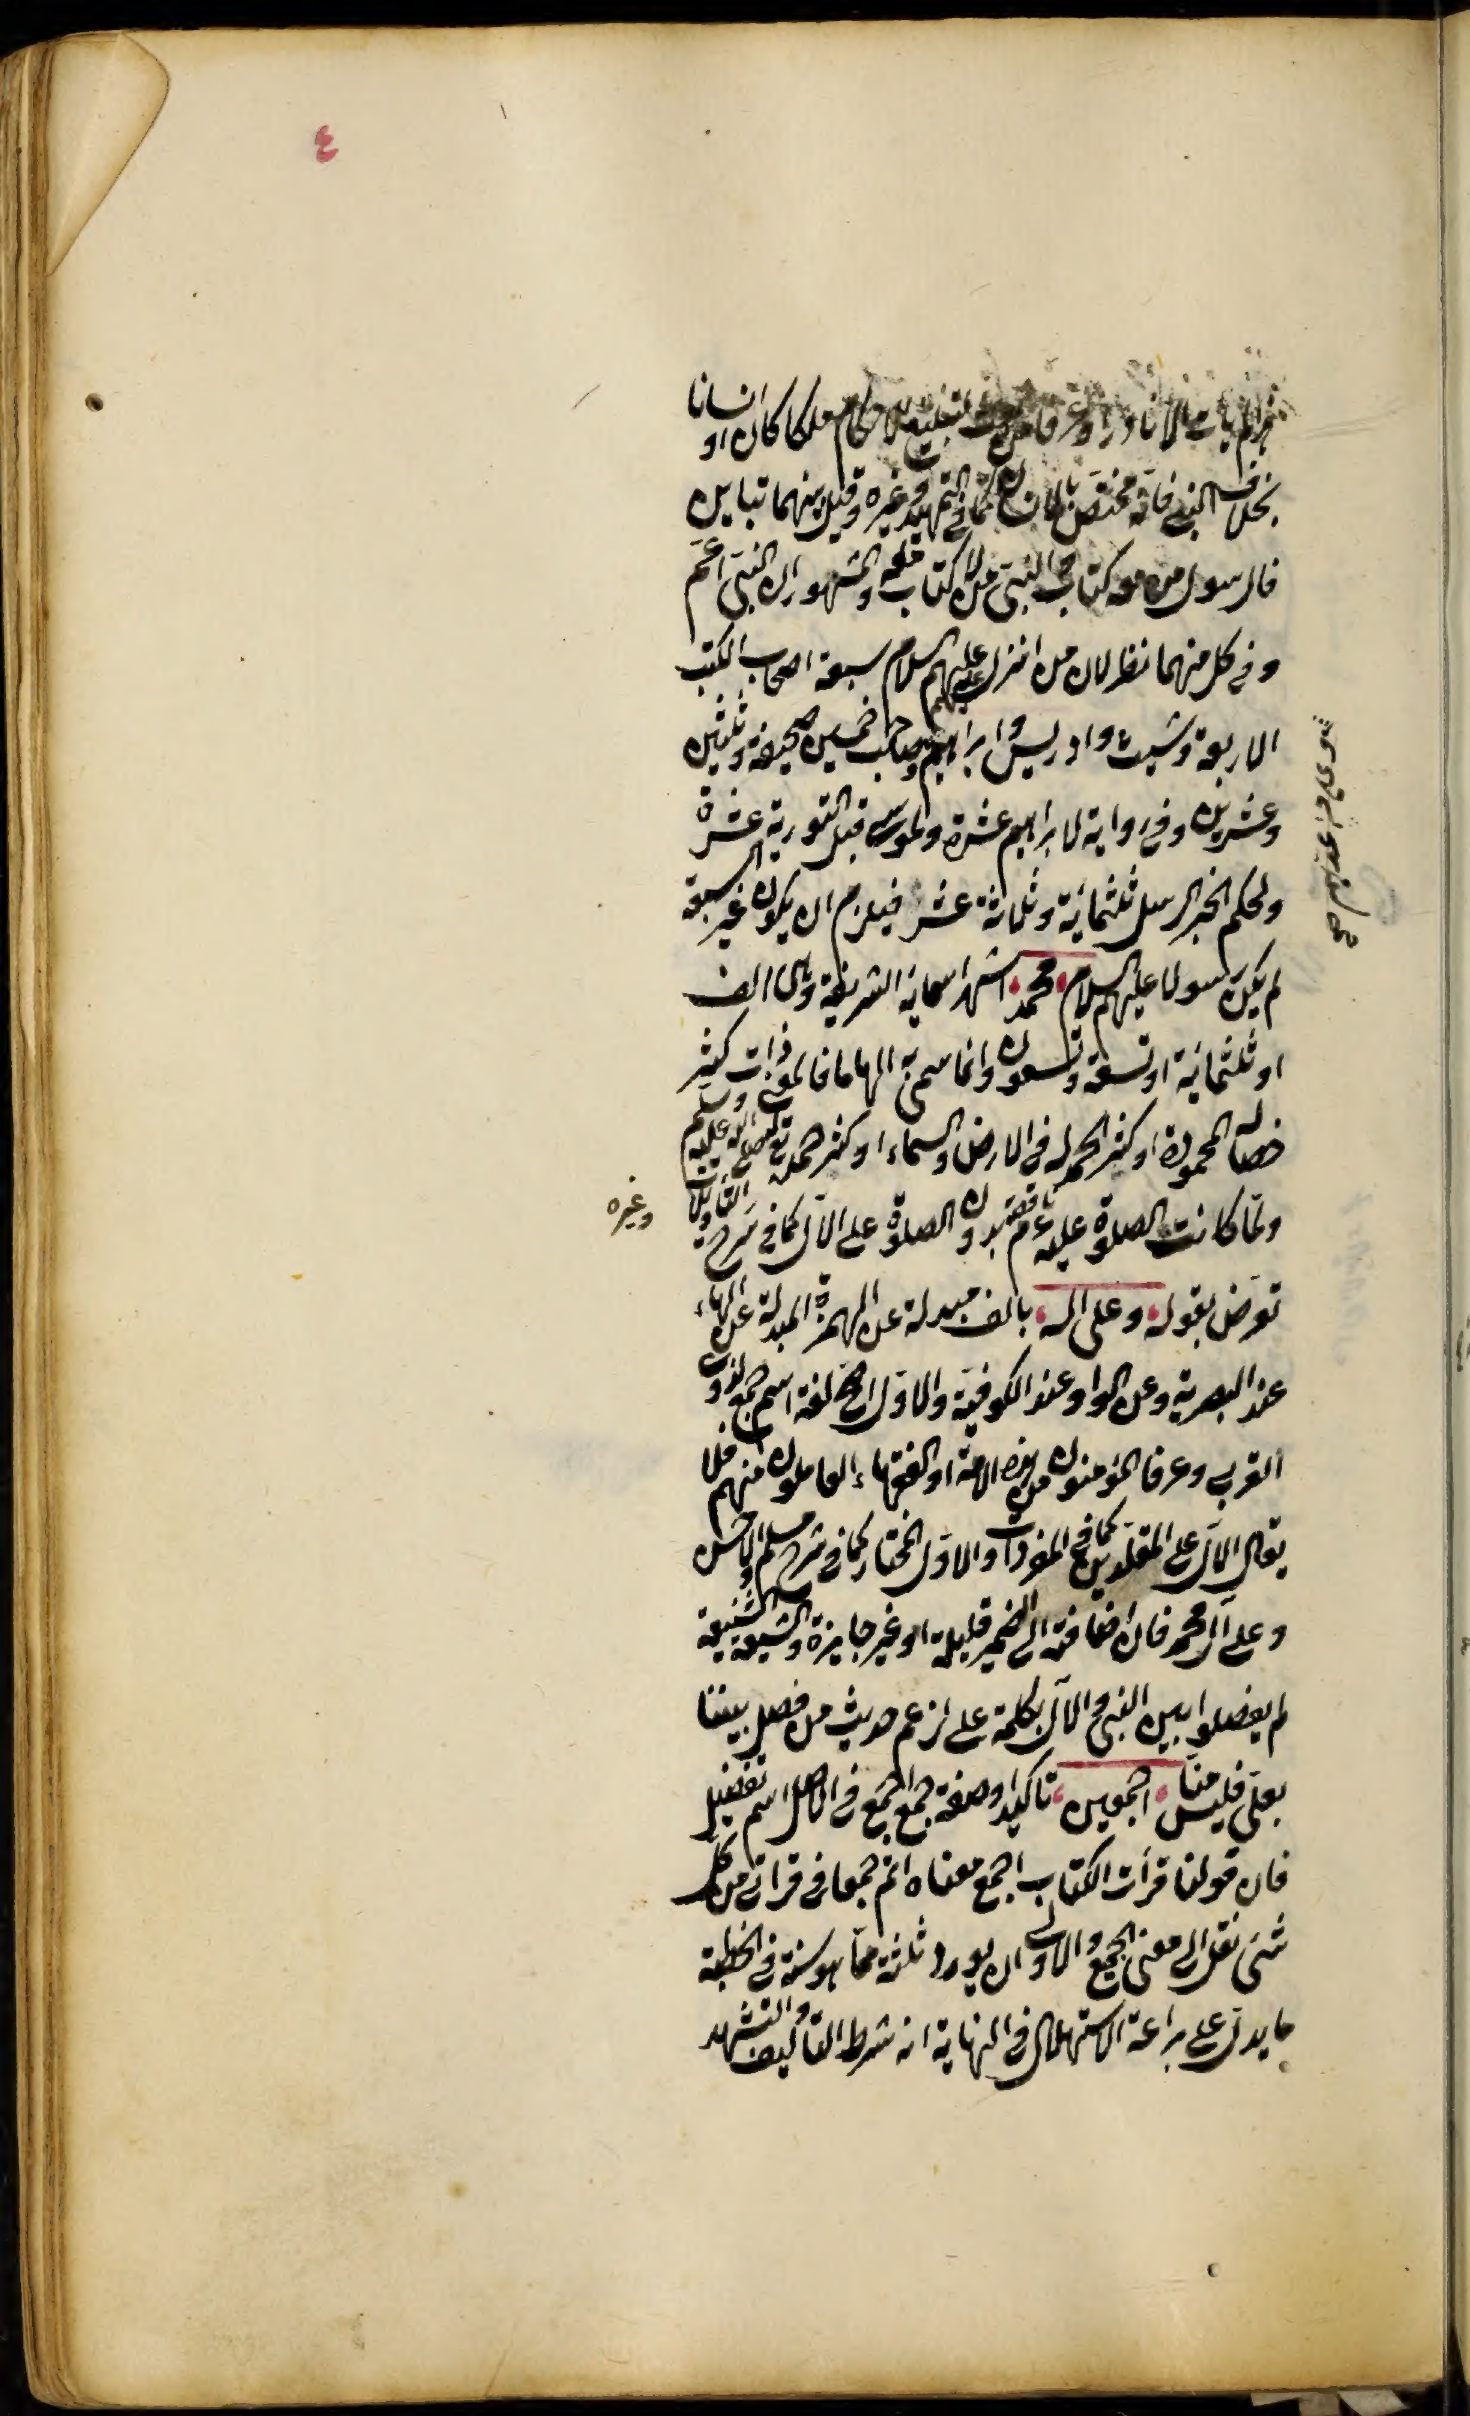 ٤
لم يأت الا نادرا وعرفا من بعث لتبليغ الاحكام ملكا كان او انسانا
بخلاف النبي فانه مختص بالانسان كما في التمهيد وغيره وقيل بينهما تباين
فالرسول من معه كتاب والنبي من لا كتاب معه والمشهور ان النبي اعم
وفي كل منهما نظر لان من انزل عليهم عليهم السلام سبعة اصحاب الكتب
الاربعة وشيث وادريس وابراهيم وصاحب خمسين صحيفة وثلثين
وعشرين وفي رواية لابراهيم عشرة ولموسى قبل التورية عشرة
ولحكم الخبر الرسل ثلثمائة وثلاثة عشر فيلزم ان يكون غير السبعة
لم يكن رسولا عليهم السلام محمد اشهر اسمائه الشريفة وهي الف
او ثلثمائة او تسعة وتسعون وانما سمي به الهاما فالمعنى ذات كثير
خصاله المحمودة او كثر الحمد له في الارض والسماء او كثر حمده تع صلى الله عليه وسلم
ولما كانت الصلوة عليه عم ناقصة بدون الصلوة على الآل كما في شرح التأويلات
وغيره
تعرض بقوله وعلى اله بالف مبدلة عن الهمزة المبدلة عن الهاء
عند البصرية وعن الواو عند الكوفية والاول اصح لغة اسم جمع لذوي
القربى وعرفا المؤمنون من هذه الامة او الفقهاء العاملون منهم فلا
يقال الآل على المقلدين كما في المفردات والاول المختار كما في شرح مسلم والاحسن
وعلى آل محمد فان اضافته الى الضمير قليلة او غير جايزة والشيعة الشنيعة
لم يفصلوا بين النبي والآل بكلمة على لزعم حديث من فصل بيننا
بعلى فليس منا اجمعين تاكيد او صفة جمع اجمع في الاصل اسم تفضيل
فان قولنا قرأت الكتاب اجمع معناه اتم جمعا في قرائي من كل
شئ نقل الى معنى الجمع والاولى ان يورد ثلثة مما هو سنة في الخطبة
ما يدل على براعة الاستهلال في النهاية انه شرط التأليف والتشهد